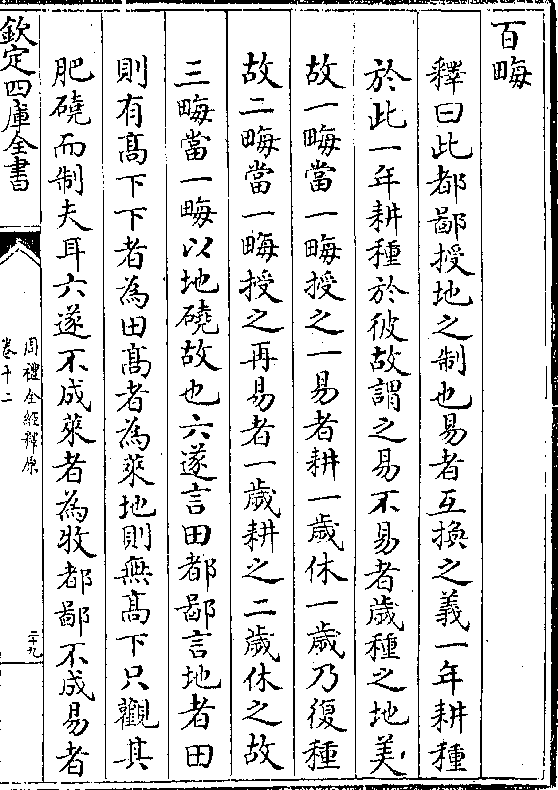 百晦
釋曰此都鄙授地之制也易者互換之義一年耕種
於此一年耕種於彼故謂之易不易者歲種之地美
故一晦當一晦授之一易者耕一歲休一歲乃復種
故二晦當一晦授之再易者一歲耕之二歲休之故
三晦當一晦以地磽故也六遂言田都鄙言地者田
則有髙下下者為田髙者為萊地則無髙下只觀其
肥磽而制夫耳六遂不成萊者為牧都鄙不成易者
欽定四庫全書
周禮全經釋原
卷十二
二十九